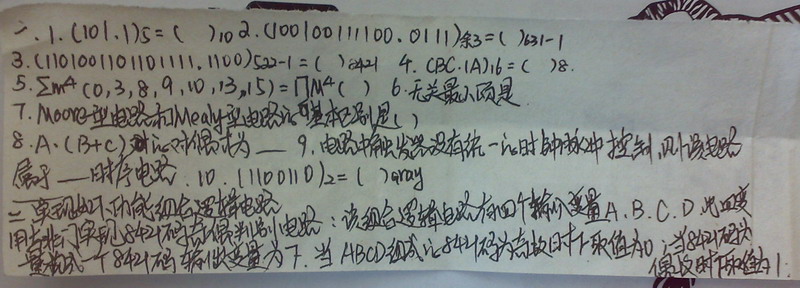 一. 1. (101.1)5=( )10 2. (100100111100.0111)余3=( )631-1
3. (1101001101101111.1100)522-1=( )8421 4. (BC.1A)16=( )8.
5. Σm4(0,3,8,9,10,13,15)=∏M4( ) 6. 无关最小项是
7. Moore型电路和Mealy型电路的基本区别是( )
8. A·(B+C)的对偶式为 ___ 9. 电路中触发器没有统一的时钟脉冲控制,则该电路
属于 ___ 时序电路. 10. (1100110)2=( )gray
二. 实现如下功能组合逻辑电路
用与非门实现8421码奇偶判别电路:该组合逻辑电路有四个输入变量A.B.C.D, 此四变
量构成一个8421码 输出变量为F. 当ABCD组成的8421码为奇数时F取值为0;当8421码为
偶数时F取值为1.